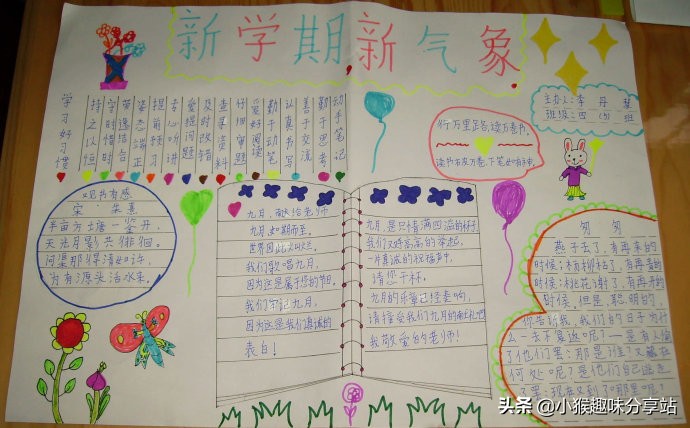 新学期新气象
主办：李丹慧
班级：四(3)班
学习好习惯
持之以恒
守时惜时
姿态端正
提前预习
专心听讲
爱提问题
及时改错
查果资料
仔细审题
爱好阅读
勤于动笔
认真书写
善于交流
勤于思考
动手笔记
行万里足路,读万卷书。
读书有友万卷,下笔如有神。
观书有感
宋：朱熹
半亩方土塘一鉴开，
天光月影共徘徊。
问渠那得清如许，
为有源头活水来。
九月，献给老师
九月，如期而至。
世界因此欢欣。
我们歌唱九月，
因为这是属于您的节日。
我们牢记九月，
因为这是我们真诚的
表白！
九月是只情满四溢的杯，
我们又好高高的举起，
一片真诚的祝福声中，
请你干杯。
九月的乐章已经奏响，
请接受我们九月的献礼吧
我敬爱的老师！
匆匆
燕子去了，有再来的
时候；杨柳枯了，有再青的
时候；桃花谢了，有再开的
时候。但是，聪明的，
你告诉我，我们的日子为什
么一去不复返呢？——是有人偷
了他们罢：那是谁？又藏在
何处呢？是他们自己逃走
了罢：现在又到了哪里呢？
头条 @小猴趣味分享站